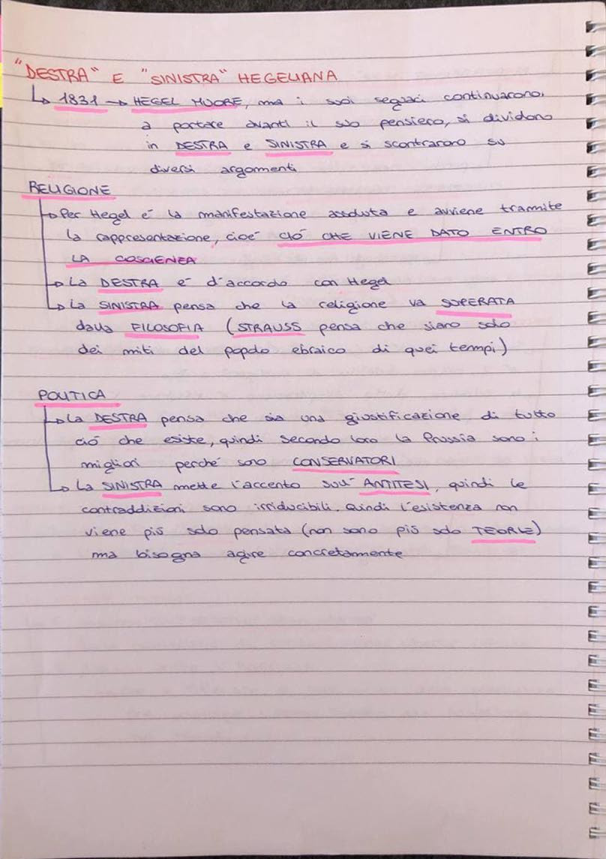 "DESTRA" E "SINISTRA" HEGELIANA
↳ 1831 → HEGEL MUORE, ma i suoi seguaci continuarono
a portare avanti il suo pensiero, si dividono
in DESTRA e SINISTRA e si scontrarono su
diversi argomenti
RELIGIONE
→ Per Hegel è la manifestazione assoluta e avviene tramite
la rappresentazione, cioè CIÒ CHE VIENE DATO ENTRO
LA COSCIENZA
→ La DESTRA è d'accordo con Hegel
→ La SINISTRA pensa che la religione va SUPERATA
dalla FILOSOFIA (STRAUSS pensa che siano solo
dei miti del popolo ebraico di quei tempi)
POLITICA
→ La DESTRA pensa che sia una giustificazione di tutto
ciò che esiste, quindi secondo loro la Prussia sono i
migliori perché sono CONSERVATORI
→ La SINISTRA mette l'accento sull'ANTITESI, quindi le
contraddizioni sono irriducibili. Quindi l'esistenza non
viene più solo pensata (non sono più solo TEORIE)
ma bisogna agire concretamente